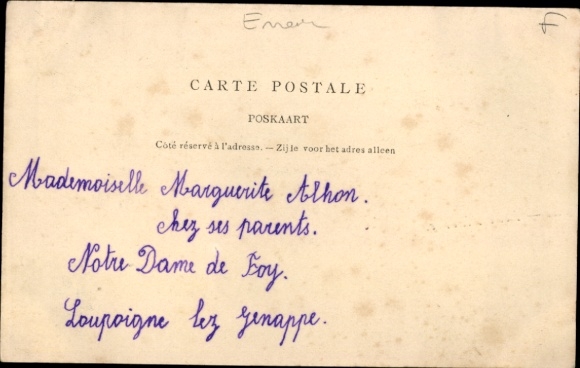 Erreur
CARTE POSTALE
POSKAART
Côté réservé à l'adresse. — Zijle voor het adres alleen
Mademoiselle Marguerite Alhon.
chez ses parents.
Notre Dame de Foy.
Loupoigne lez Genappe.